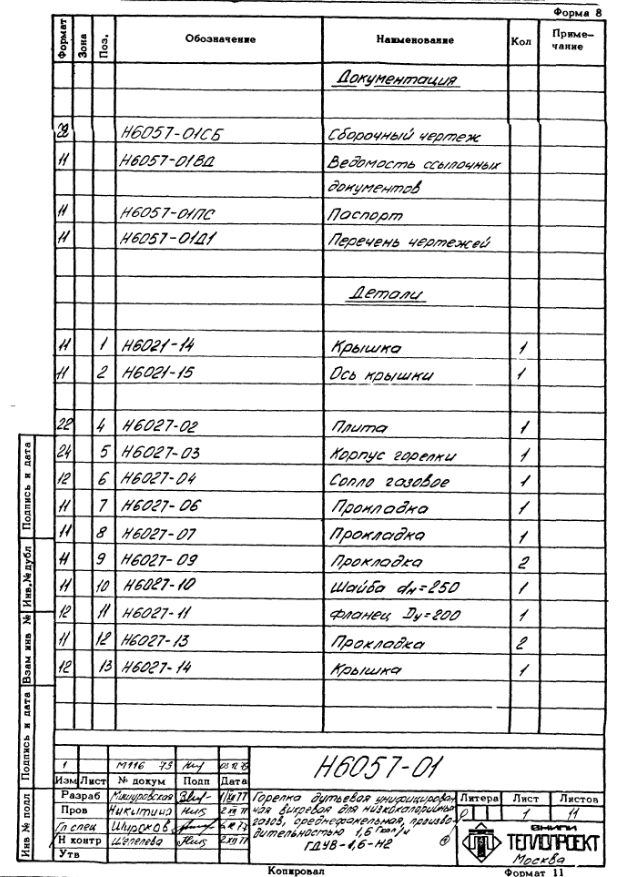 Форма 8
Формат Зона Поз. Обозначение Наименование Кол Приме-
чание
Документация
22 Н6057-01СБ Сборочный чертеж
11 Н6057-01ВД Ведомость ссылочных
документов
11 Н6057-01ПС Паспорт
11 Н6057-01Д1 Перечень чертежей
Детали
11 1 Н6021-14 Крышка 1
11 2 Н6021-15 Ось крышки 1
22 4 Н6027-02 Плита 1
24 5 Н6027-03 Корпус горелки 1
12 6 Н6027-04 Сопло газовое 1
11 7 Н6027-06 Прокладка 1
11 8 Н6027-07 Прокладка 1
11 9 Н6027-09 Прокладка 2
11 10 Н6027-10 Шайба dн=250 1
12 11 Н6027-11 Фланец Dу=200 1
11 12 Н6027-13 Прокладка 2
12 13 Н6027-14 Крышка 1
Подпись и дата
Инв.№ дубл
Взам инв №
Подпись и дата
Инв № подл
1 М116 73
Изм Лист № докум Подп Дата
Разраб
Пров Никитина
Гл спец Широков
Н контр Шепелева
Утв
Н6057-01
Горелка дутьевая унифицирован
ная вихревая для низкокалорийных
газов, среднефакельная, произво
дительностью 1,6 Гкал/ч
ГДУВ-1,6-Н2
Литера Лист Листов
Р 1 11
ВНИПИ
ТЕПЛОПРОЕКТ
Москва
Копировал Формат 11